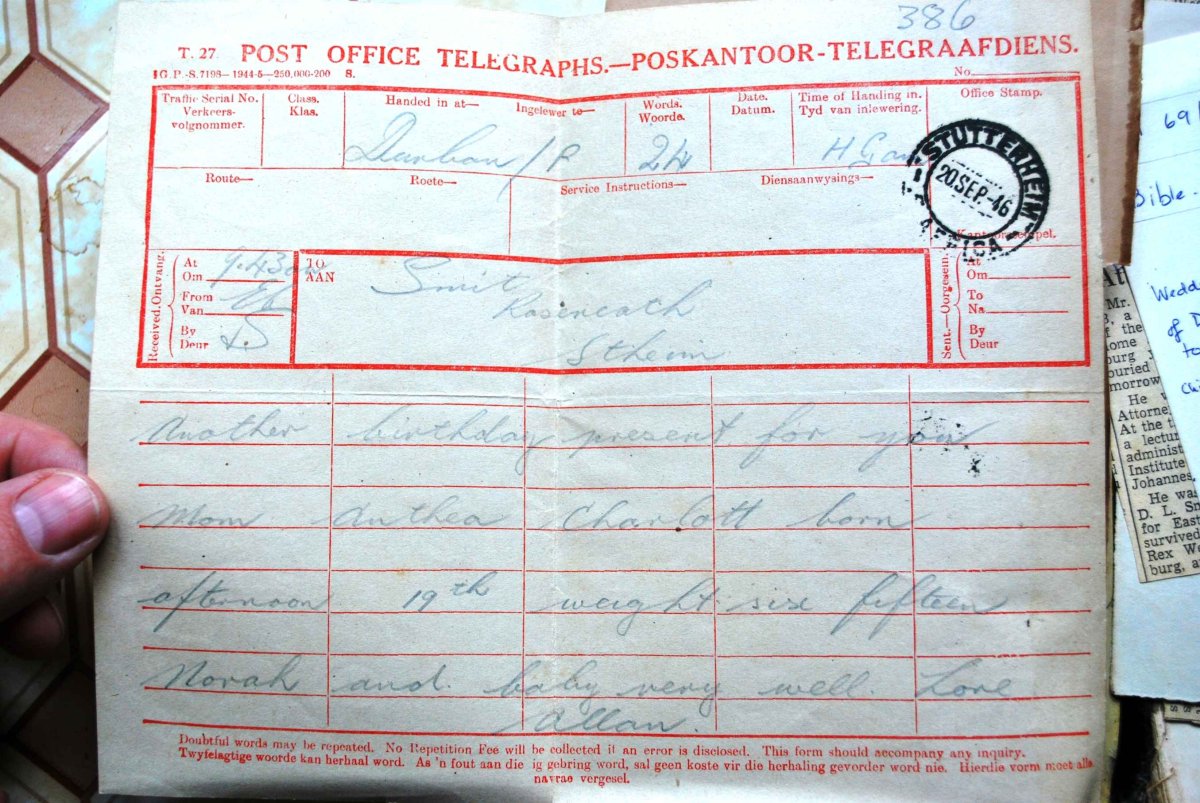 386
T. 27. POST OFFICE TELEGRAPHS.—POSKANTOOR-TELEGRAAFDIENS.
G.P.-S.7198—1944-5—250,000-200 S.
No.
Traffic Serial No.
Verkeers-
volgnommer.
Class.
Klas.
Handed in at— Ingelewer te—
Durban /P
Words.
Woorde.
24
Date.
Datum.
Time of Handing in.
Tyd van inlewering.
Office Stamp.
STUTTERHEIM
20.SEP.46
Route— Roete—
Service Instructions— Diensaanwysings—
Received.Ontvang.
At
Om 9.43am
From
Van
By
Deur
TO
AAN
Smit
Roseneath
Stheim
Sent.—Oorgesein.
At
Om
To
Na
By
Deur
Another birthday present for you
Mom Anthea Charlott born
afternoon 19th weight six fifteen
Norah and baby very well. Love
Allan.
Doubtful words may be repeated. No Repetition Fee will be collected if an error is disclosed. This form should accompany any inquiry.
Twyfelagtige woorde kan herhaal word. As 'n fout aan die ig gebring word, sal geen koste vir die herhaling gevorder word nie. Hierdie vorm moet alle
navrae vergesel.
69
Bible
Wedd
of D
to
Mr.
a
the
ome
burg
buried
morrow
He
Attorne
At the t
a lectur
administ
Institute
Johannes
He wa
D. L. Sm
for East
survived
Rex We
burg, a